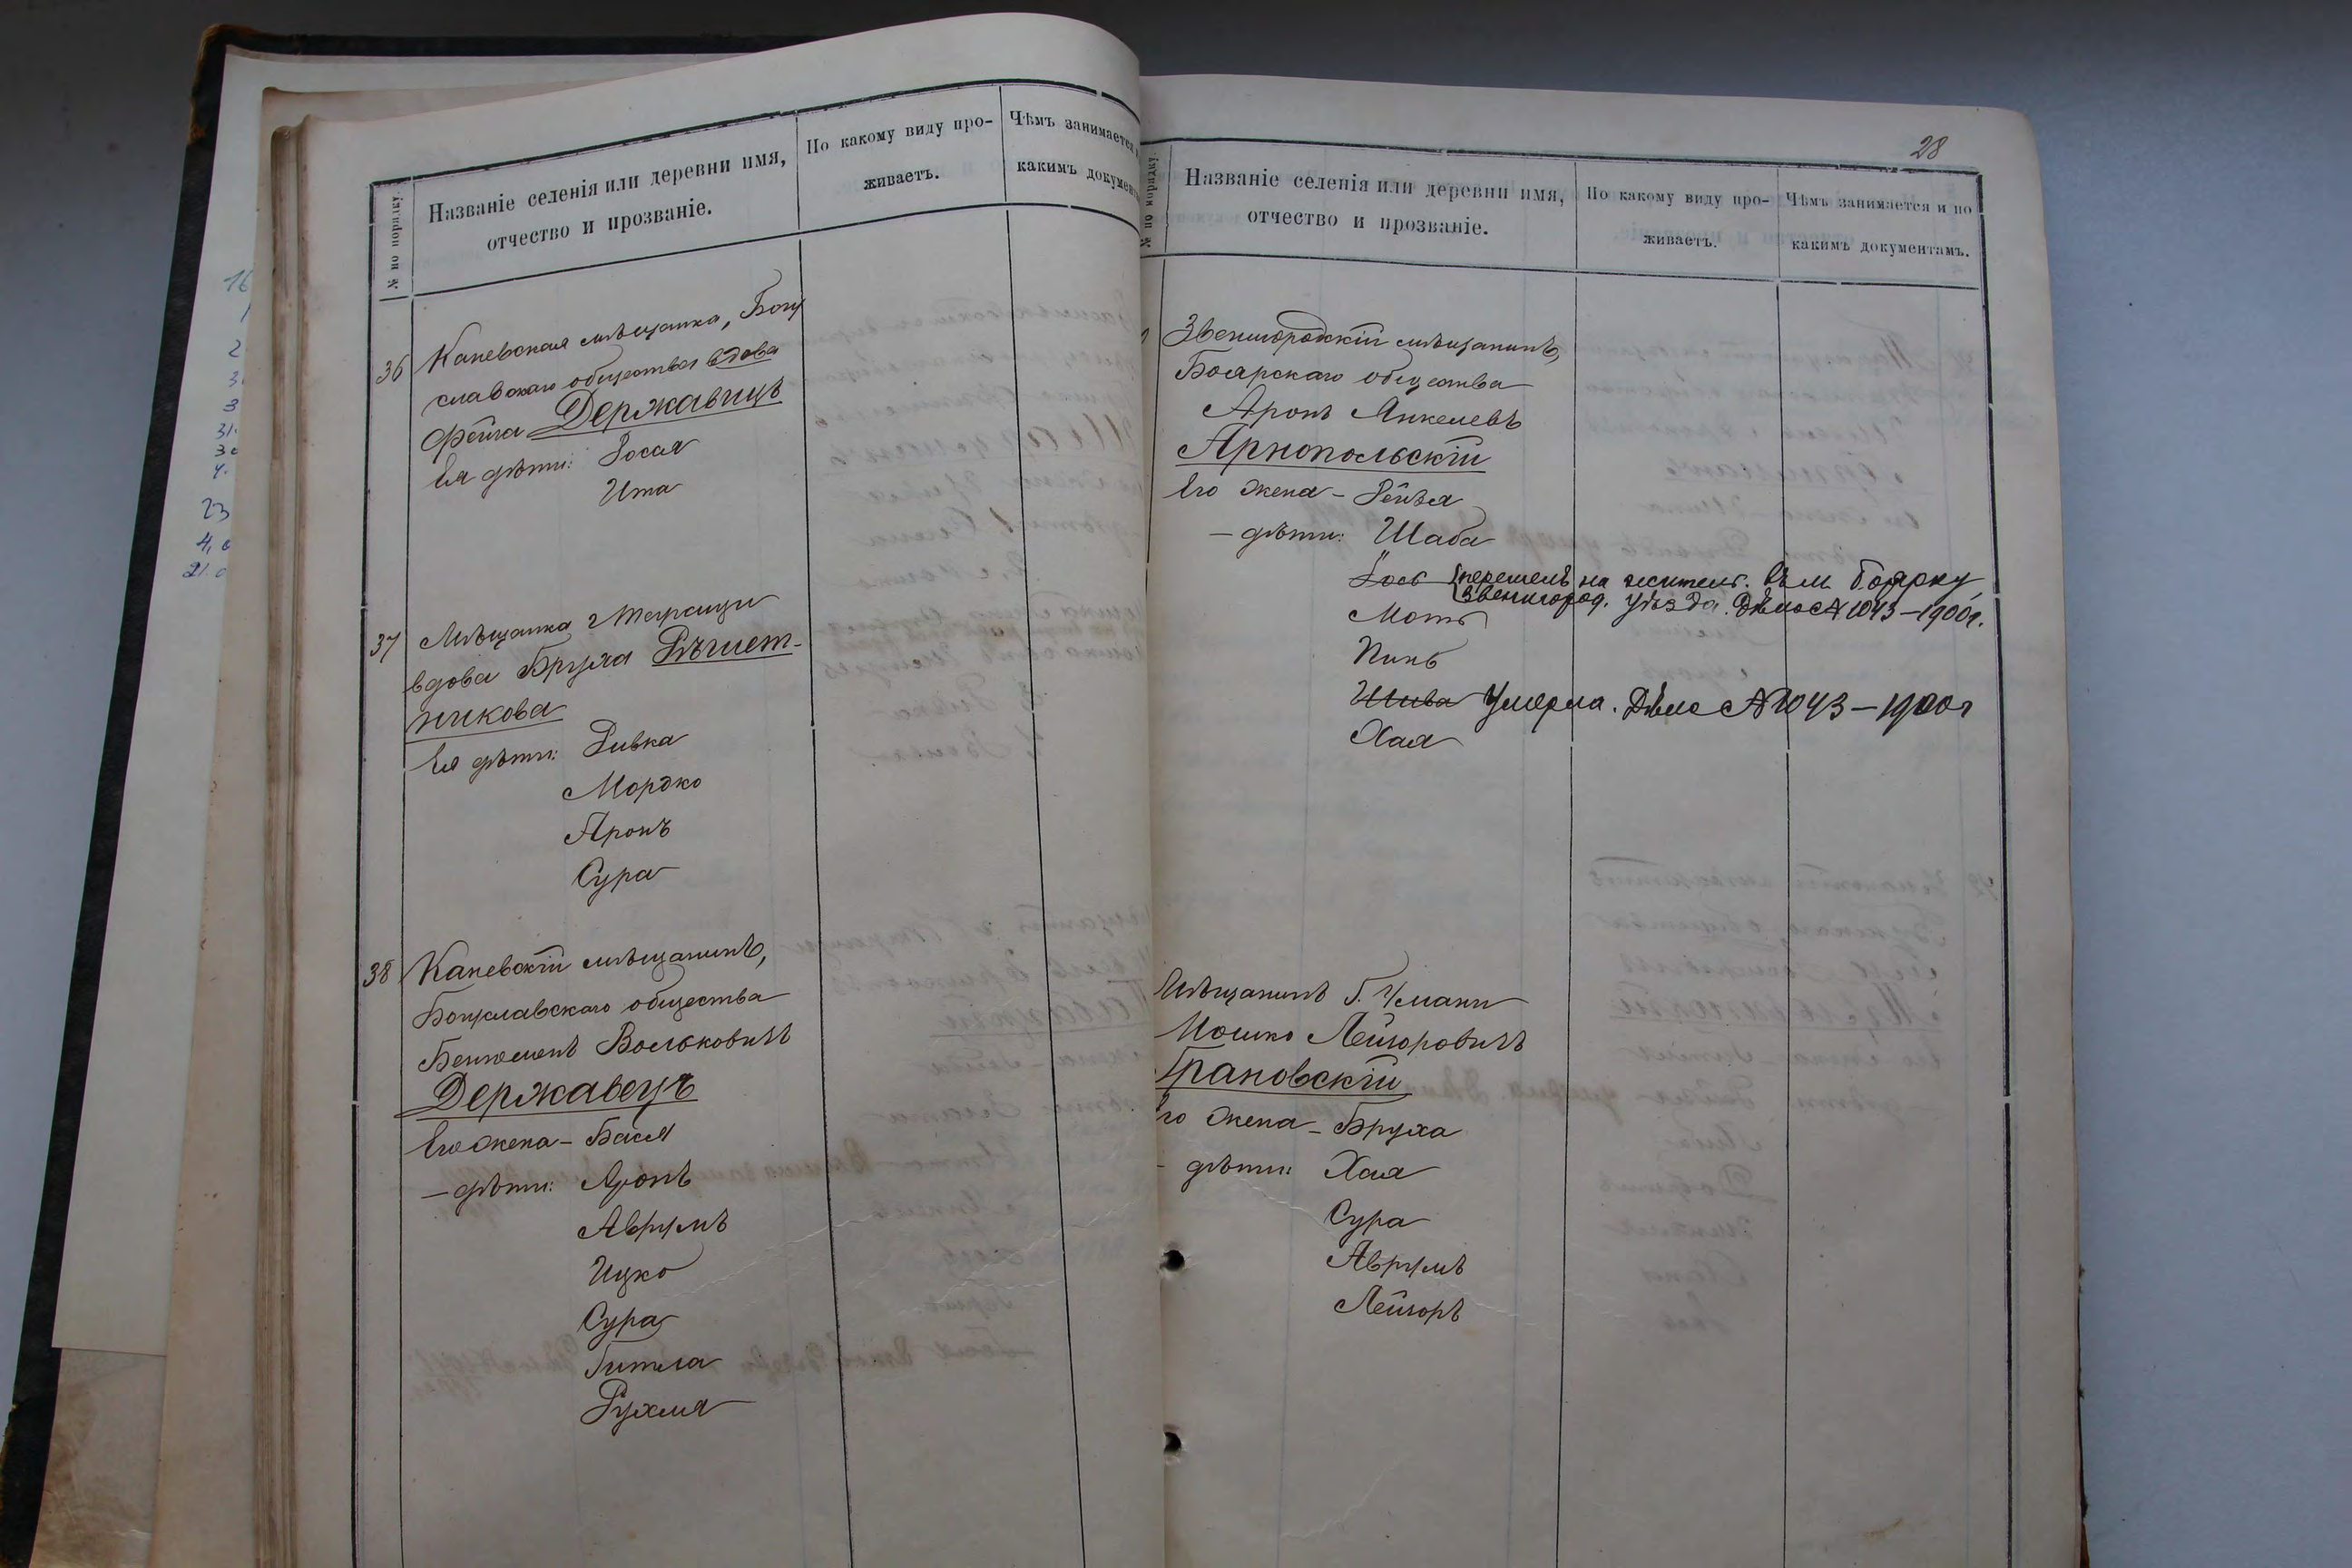 № по порядку.
Названіе селенія или деревни имя,
отчество и прозваніе.
По какому виду про-
живаетъ.
Чѣмъ занимается
какимъ докумен
36
Каневская мѣщанка, Богу
славскаго общества вдова
Фейга Державицъ
Ея дѣти: Іосая
Ита
37
Мѣщанка г Таращи
вдова Бруха Рѣшет-
никова
Ея дѣти: Ривка
Мордко
Аронъ
Сура
38
Каневскій мѣщанинъ,
Богуславскаго общества
Беньеменъ Вольковичъ
Державецъ
Его жена - Бася
— дѣти: Аронъ
Аврумъ
Ицко
Сура
Гитля
Рухля
28
№ по порядку.
Названіе селенія или деревни имя,
отчество и прозваніе.
По какому виду про-
живаетъ.
Чѣмъ занимается и по
какимъ документамъ.
Звенигородскій мѣщанинъ,
Боярскаго общества
Аронъ Янкелевъ
Арнопольскій
Его жена - Рейзя
— дѣти: Шаба
Іось перешелъ на жительс. въ м. Боярку,
Звенигород. уѣзда. Дѣло № 1043 — 1900 г.
Моть
Пинь
Шива Умерла. Дѣло № 1043 — 1900 г
Хая
Мѣщанинъ г. Умани
Мошко Лейзоровичъ
Грановскій
его жена - Бруха
- дѣти: Хая
Сура
Аврумъ
Лейзоръ